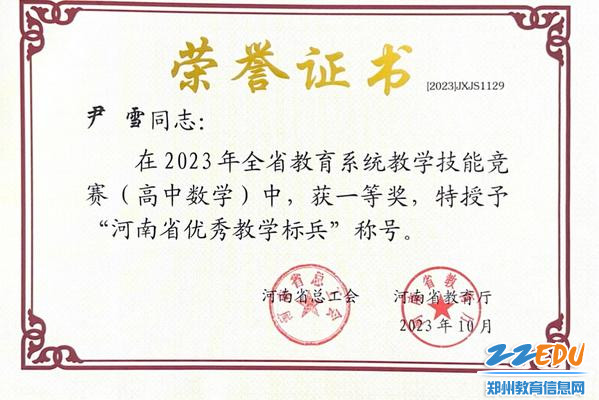 荣誉证书
[2023]JXJS1129
尹 雪同志：
在2023年全省教育系统教学技能竞
赛（高中数学）中，获一等奖，特授予
“河南省优秀教学标兵”称号。
河南省总工会 河南省教育厅
河南省总工会
河南省教育厅
2023年10月
ZZEDU
郑州教育信息网